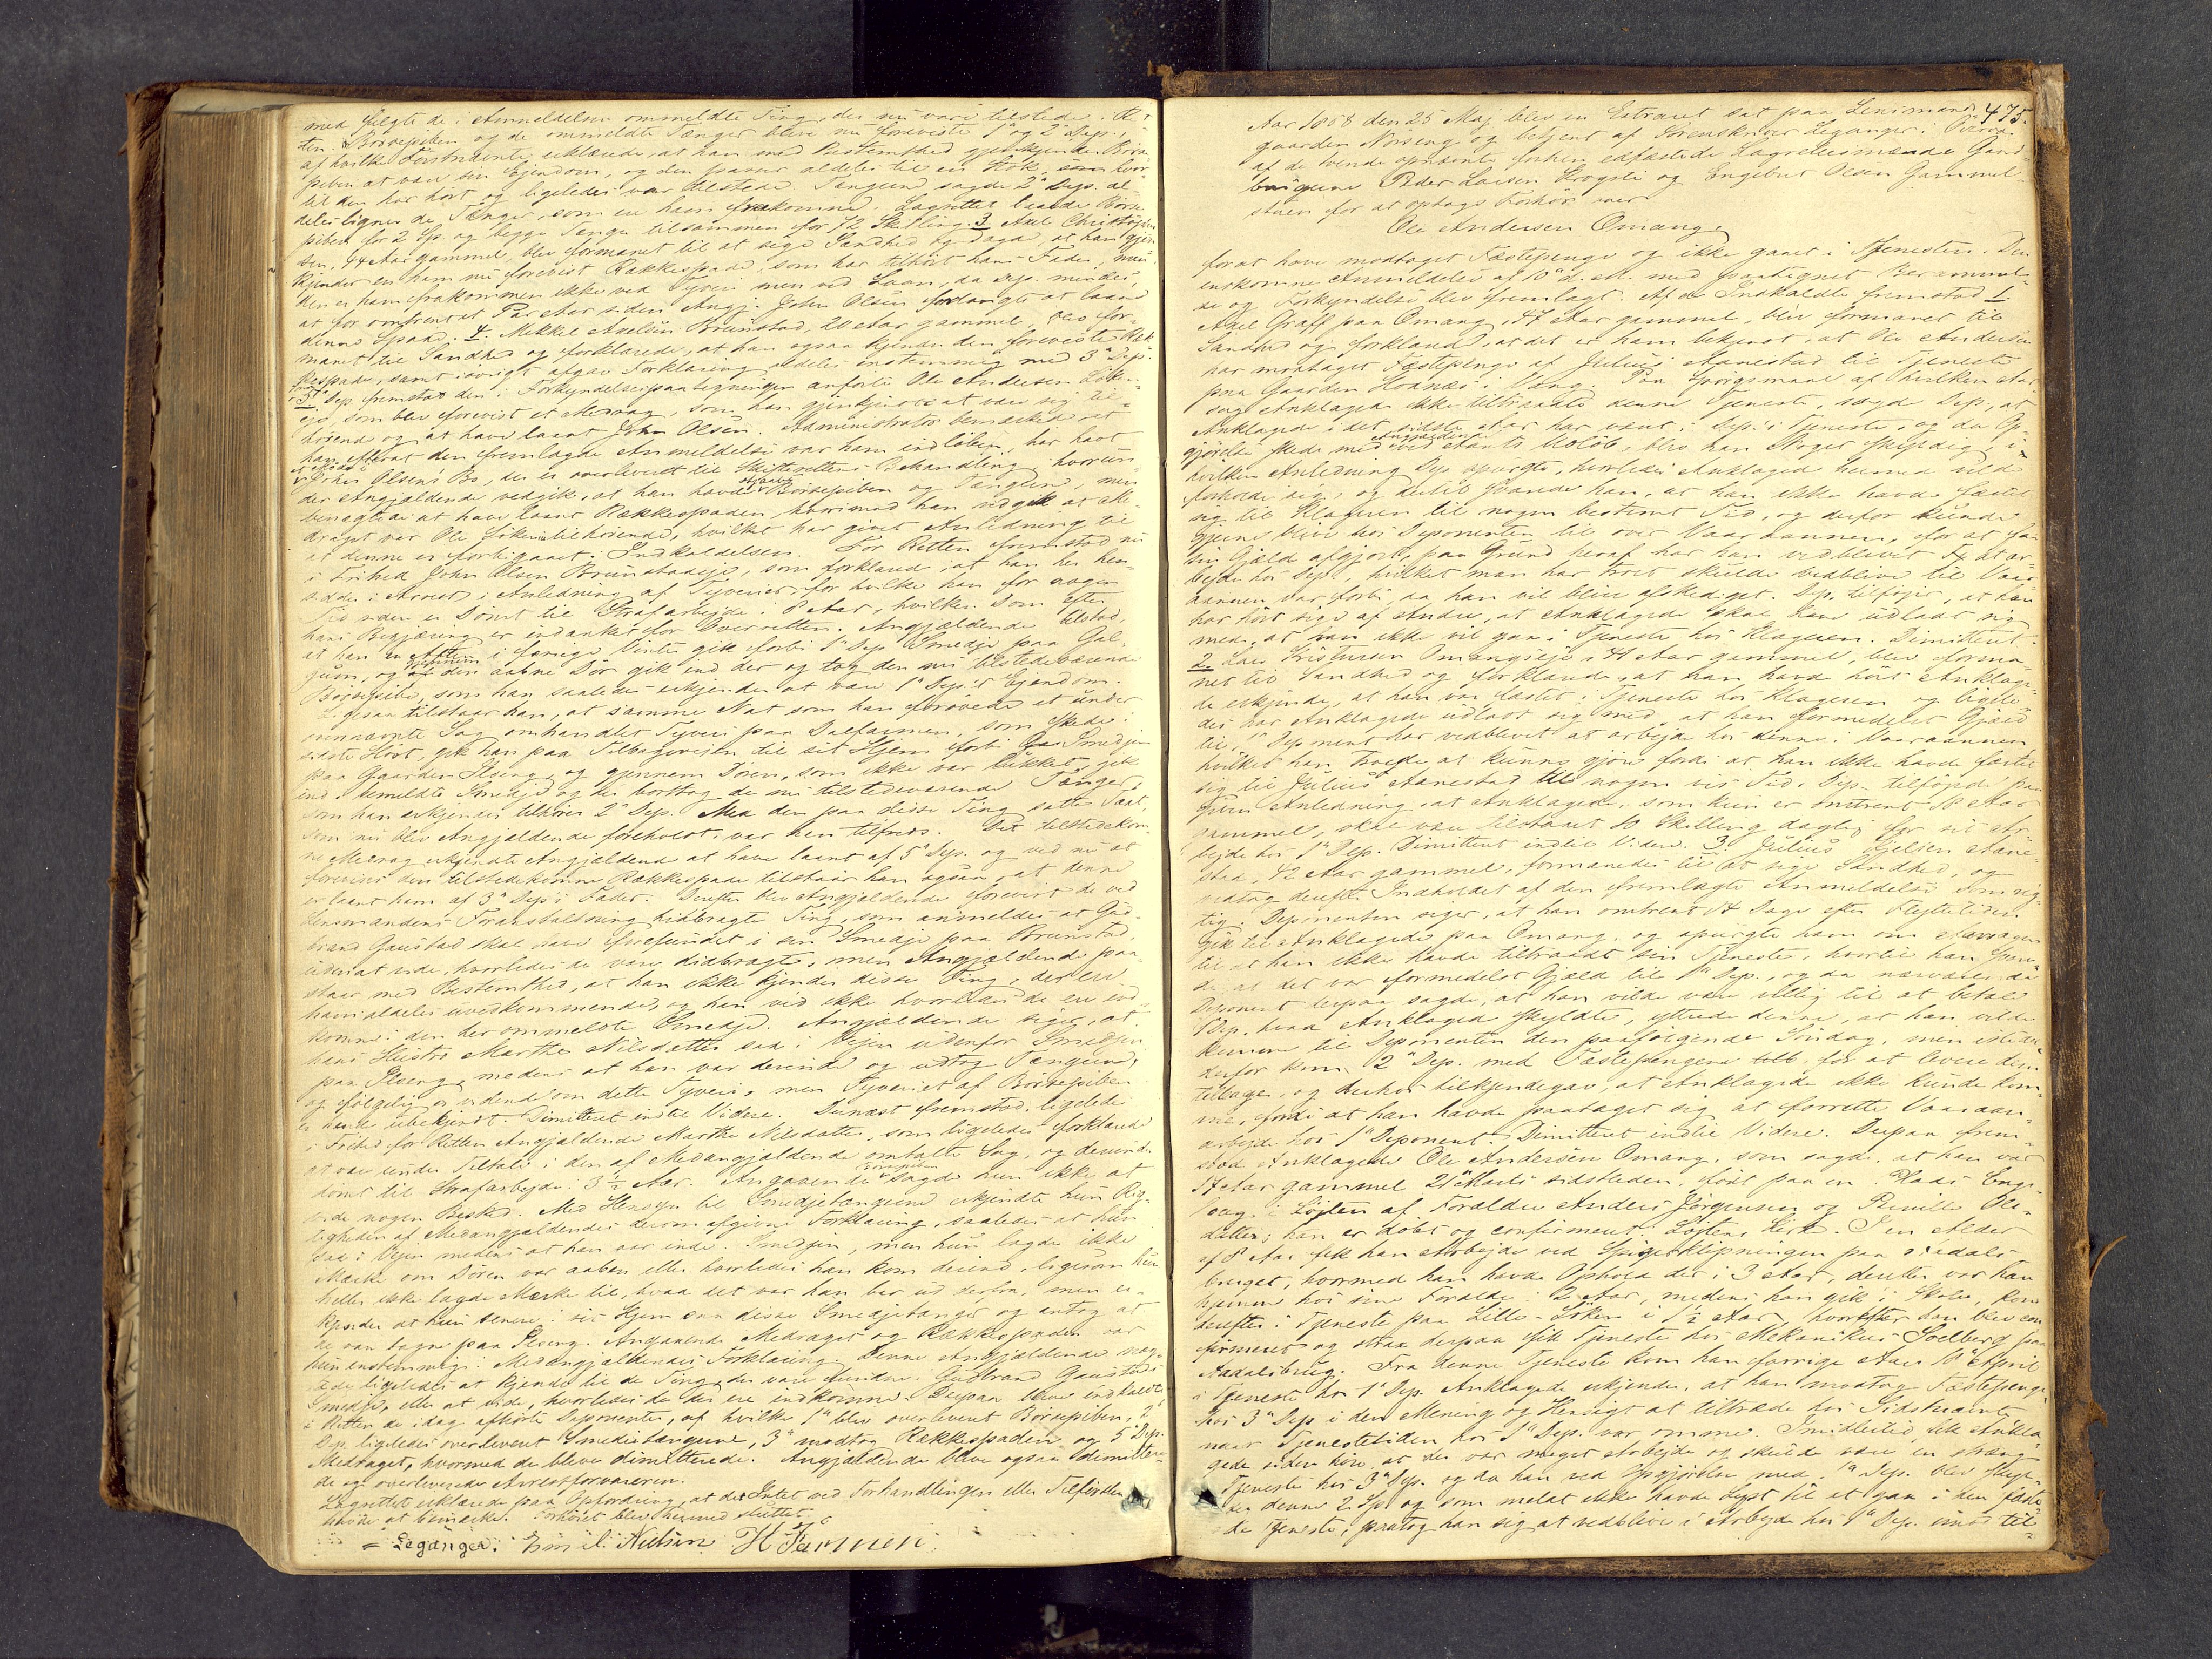 med fulgte de i Anmeldelsen ommeldte Ting, der nu vare tilstede. Ret-
ten. Börsepiben og de ommeldte Tænger bleve nu foreviste 1ste og 2den Dep.,
af hvilke Förstnævnte erklærede, at han med Bestemthed gjenkjender Börse-
piben at være sin Ejendom, og den passer aldeles til en Stok, som hvor-
til den har hört og ligeledes var tilstede. Tængerne sagde 2den Dep. al-
deles ligner de Tænger, som ere ham frakomne. Lagrettet taxerede Börse-
piben for 2 Sp. og begge Tænger tilsammen for 72 Skilling. 3. Axel Christophers-
sen, 44 Aar gammel, blev formanet til at sige Sandhed og sagde, at han gjen-
kjender en ham nu forevist Hakkespade, som har tilhört hans Fader, men
den er ham frakommen ikke ved Tyveri men ved Laan, da Dep. mindes,
at for omtrent et Par Aar siden Angj. John Olsen forlangte at laane
denne Spade. 4. Mikkel Axelsen Brunstad, 20 Aar gammel, blev for-
manet til Sandhed og forklarede, at han ogsaa kjender den foreviste Hak-
kespade, samt iövrigt afgav Forklaring aldeles enstemmig med 3die Dep.
5te Dep. fremstod den i Forkyndelsespaategningen anförte Ole Andersen Löken-
eje som blev forevist et Meddrag, som han gjenkjendte at være sig til-
hörende og at have laant John Olsen. Administrator bemærkede at
han efterat den fremlagte Anmeldelse var ham indlöben, har havt
et Möde i John Olsens Bo, der er overleveret til Skifterettens Behandling hvorun-
der Angjældende vedgik, at han havde stjaalet Börsepiben og Tængerne, men
benægtede at have laant Hakkespaden, hvorimod han vedgik at Me-
draget var Ole Löken tilhörende, hvilket har givet Anledning til
at denne er foreligaaet. Indkaldelsen. For Retten fremstod nu
i Frihed John Olsen Brunstadeje, som forklarede, at han her hen-
sidder i Arrest i Anledning af Tyverier, for hvilke han for nogen
Tid siden er Dömt til Strafarbejde i 8 Aar, hvilken Dom efter
hans Begjæring er indanket for Overretten. Angjældende tilstod,
at han en Aften i forrige Vinter gik forbi 1ste Dep. Smedje paa Gal-
gum, og gjennem den aabne Dör gik ind der og tog den nu tilstedeværende
Börsepibe, som han saaledes erkjender at være 1ste Dep.s Ejendom.
Ligesaa tilstaar han, at samme Nat som han forövede et under
ovennævnte Sag omhandlet Tyveri paa Dalfarmen, som skede i
sidste Höst, gik han paa Tilbagevejen til sit Hjem forbi Smedjen
paa Gaarden Ilseng og gjennem Dören, som ikke var lukket, gik
ind i bemeldte Smedje og der borttog de nu tilstedeværende Tænger,
som han erkjender tilhörer 2den Dep. Med den paa disse Ting satte Taxt,
som nu blev Angjældende foreholdt, var han tilfreds. Det tilstedekom-
ne Meddrag erkjendte Angjældende at have laant af 5te Dep. og ved nu at
forevises den tilstedekomne Hakkespade tilstaar han ogsaa, at denne
er laant ham af 3die Dep.s Fader. Derefter blev Angjældende forevist de ved
Lensmandens Foranstaltning hidbragte Ting, som anmeldes at Gul-
brand Gaustad skal have forefundet i sin Smedje paa Brunstad,
uden at vide, hvorledes de vare didbragte, men Angjældende paa-
staar med Bestemthed, at han ikke kjender disse Ting, der ere
ham aldeles uvedkommende, og han ved ikke hvorledes de ere ind-
komne i den her ommeldte Smedje. Angjældende siger, at
hans Hustru Marthe Nilsdatter sad i Vejen udenfor Smedjen
paa Ilseng, medens at han var derinde og udtog Tængerne,
og fölgelig er vidende om dette Tyveri, men Tyveriet af Börsepiben
er hende ubekjendt. Dimitteret indtil Videre. Dernæst fremstod ligeledes
i Frihed for Retten Angjældende Marthe Nilsdatter, som ligeledes forklarede
at være under Tiltale i den af Medangjældende omtalte Sag, og derunder
dömt til Strafarbejde i 3½ Aar. Angaaende Börsepiben sagde hun ikke at
vide nogen Besked. Med Hensyn til Smedjetængerne erkjendte hun Rig-
tigheden af Medangjældendes derom afgivne Forklaring, saaledes at hun
sad i Vejen medens at han var inde i Smedjen, men hun lagde ikke
Mærke om Dören var aaben eller hvorledes han kom derind, ligesom hun
heller ikke lagde Mærke til, hvad det var han bar ud derfra, men er-
kjender at hun senere i sit Hjem saa disse Smedjetænger og antog at
de var tagne paa Ilseng. Angaaende Meddraget og Hakkespaden var
hun enstemmig i Medangjældendes Forklaring. Denne Angjældende nægt-
ede ligeledes at kjende til de Ting, der vare fundne i Gulbrand Gaustads
Smedje, eller at vide, hvorledes de der ere indkomne. Derpaa bleve indkaldte
i Retten de idag afhörte Deponenter, af hvilke 1ste blev overleveret Börsepiben, 2den
Dep. ligeledes overleveret Smedietængerne, 3die modtog Hakkespaden og 5te Dep.
Meddraget, hvormed de bleve dimitterede. Angjældende bleve ogsaa dimitterede
de og overleverede Arrestforvareren.
Lagrettet erklærede paa Opfordring, at det Intet ved Forhandlingen eller Tilförslen
havde at bemærke. Forhöret blev hermed sluttet.
Leganger. Emil Nielsen H Farmen
475.
Aar 1858 den 25 Maj blev en Extraret sat paa Lensmand
gaarden Norseng og betjent af Sorenskriver Leganger i Overvær
af de tvende opnævnte forhen edfæstede Lagrettesmænde Gaard-
brugerne Peder Larsen Krogsti og Engebret Olsen Gammel-
stuen for at optage Forhör over
Ole Andersen Omang
for at have modtaget Fæstepenge og ikke gaaet i Tjenesten. Den
indkomne Anmeldelse af 10de d. M. med paategnet Berammel-
se og Forkyndelse blev fremlagt. Af de Indkaldte fremstod 1.
Axel Graff paa Omang, 47 Aar gammel, blev formanet til
Sandhed og forklarede, at det er ham bekjendt, at Ole Andersen
har modtaget Fæstepenge af Julius Aanestad til Tjeneste
paa Gaarden Hornæs i Vang. Paa Spörgsmaal af hvilken Aar-
sag Anklagede ikke tiltraadte denne Tjeneste, sagde Dep., at
Anklagede i det sidste Aar har været i Dep.s Tjeneste, og da Op-
gjörelse skede med Angjældende ved Aarets Udlöb, blev han Noget skyldig, i
hvilken Anledning Dep. spurgte, hvorledes Anklagede hermed vilde
forholde sig, og dertil svarede han, at han ikke havde fæstet
sig til Klageren til nogen bestemt Tid, og derfor kunde
gjerne blive hos Deponenten til over Vaaraannen, for at faa
sin Gjæld afgjort, paa Grund heraf har han vedblevet at ar-
bejde hos Dep., hvilket man har troet skulde vedblive til Vaar-
aannen var forbi, da han vil blive afskediget. Dep. tilföjer, at han
har hört sige af Andre, at Anklagede skal have udladt sig
med, at han ikke vil gaa i Tjeneste hos Klageren. Dimitteret.
2. Lars Kristensen Omangseje, 41 Aar gammel, blev forma-
net til Sandhed og forklarede, at han havde hört Anklage-
de erkjende, at han var fæstet i Tjeneste hos Klageren og ligele-
des har Anklagede udladt sig med, at han formedelst Gjæld
til 1ste Deponent har vedblevet at arbejde hos denne i Vaaraannen,
hvilket han troede at kunne gjöre fordi at han ikke havde fæstet
sig til Julius Aanestad til nogen vis Tid. Dep. tilföjede paa
given Anledning, at Anklagede, som kun er omtrent 18 Aar
gammel, skal være tilstaaet 10 Skilling daglig for sit Ar-
bejde hos 1ste Dep. Dimitteret indtil Videre. 3. Julius Nielsen Aane-
stad, 42 Aar gammel, formanedes til at sige Sandhed, og
vedtog derefter Indholdet af den fremlagte Anmeldelse som rig-
tig. Deponenten siger, at han omtrent 14 Dage efter Flyttetiden
gik til Anklagede paa Omang, og spurgte ham om Aarsagen
til at han ikke havde tiltraadt sin Tjeneste, hvortil han svare-
de at det var formedelst Gjæld til 1ste Dep., og da nærværende
Deponent derpaa sagde, at han vilde være villig til at betale
1ste Dep. hvad Anklagede skyldte, yttrede denne, at han vilde
komme til Deponenten den paafölgende Söndag, men istedet
derfor kom 2den Dep. med Fæstepengene for at levere dem
tilbage, og derhos tilkjendegav, at Anklagede ikke kunde kom-
me, fordi at han havde paataget sig at forrette Vaaraan-
arbejde hos 1ste Deponent. Dimitteret indtil Videre. Derpaa frem-
stod Anklagede Ole Andersen Omang, som sagde, at han var
17 Aar gammel 21de Marts sidstleden, födt paa en Plads Enge-
haug i Löjten af Forældre Anders Jörgensen og Pernille Ole-
datter; han er döbt og confirmeret i Löjtens Kirke. I en Alder
af 8 Aar fik han Arbejde ved Spigerklipningen paa Aadals-
bruget, hvormed han havde Ophold der i 3 Aar, derefter var han
hjemme hos sine Forældre i 2 Aar, medens han gik i Skole, kom
derefter i Tjeneste paa Lille-Löken i 1½ Aar, hvorefter han blev con-
firmeret og strax derpaa fik Tjeneste hos Mekanikus Soelberg paa
Aadalsbrug. Fra denne Tjeneste kom han forrige Aars 14de April
i Tjeneste hos 1ste Dep. Anklagede erkjender, at han modtog Fæstepenge
hos 3die Dep. i den Mening og Hensigt at tiltræde hos Sidstnævnte
naar Tjenestetiden hos 1ste Dep. var omme. Imidlertid fik Ankla-
gede siden höre, at der var meget Arbejde og skulde være en stræng
Tjeneste hos 3die Dep. og da han ved Opgjörelse med 1ste Dep. blev skyl-
dig denne 2 Sp. og som meldt ikke havde Lyst til at gaa i den fæste-
de Tjeneste, paatog han sig at vedblive i Arbejde hos 1ste Dep. imod til-